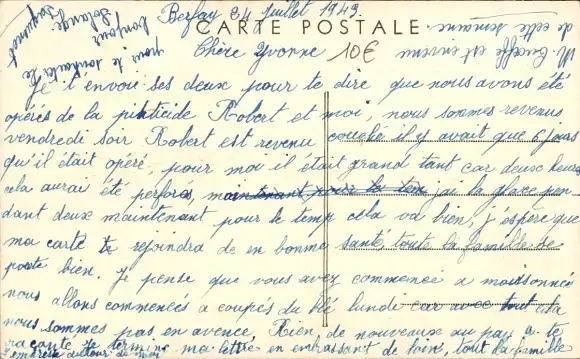 Berfay 24 Juillet 1943
CARTE POSTALE
Chère Yvonne 10€
Je t'envoie ses deux pour te dire que nous avons été
opérés de la pinticide Robert et moi, nous sommes revenus
vendredi soir Robert est revenu couché il y avait que 6 jours
qu'il était opéré, pour moi il était grand tant car deux heures
cela aurai été perforer, maintenant pour le tem jai la glace pen
dant deux maintenant pour le temp cela va bien, j espère que
ma carte te rejoindra de en bonne santé, toute la famille se
porte bien. Je pense que vous avez commencé a moissonné
nous allons commencés a coupés du blé lundi car avec tout cela
nous sommes pas en avence. Rien, de nouveaux au pays a te
raconté je termine ma lettre en embrassant de loin, tout la famille
autour de moi
pour te souhaiter le
bonjour
Solange
M. est environ
de cette semaine